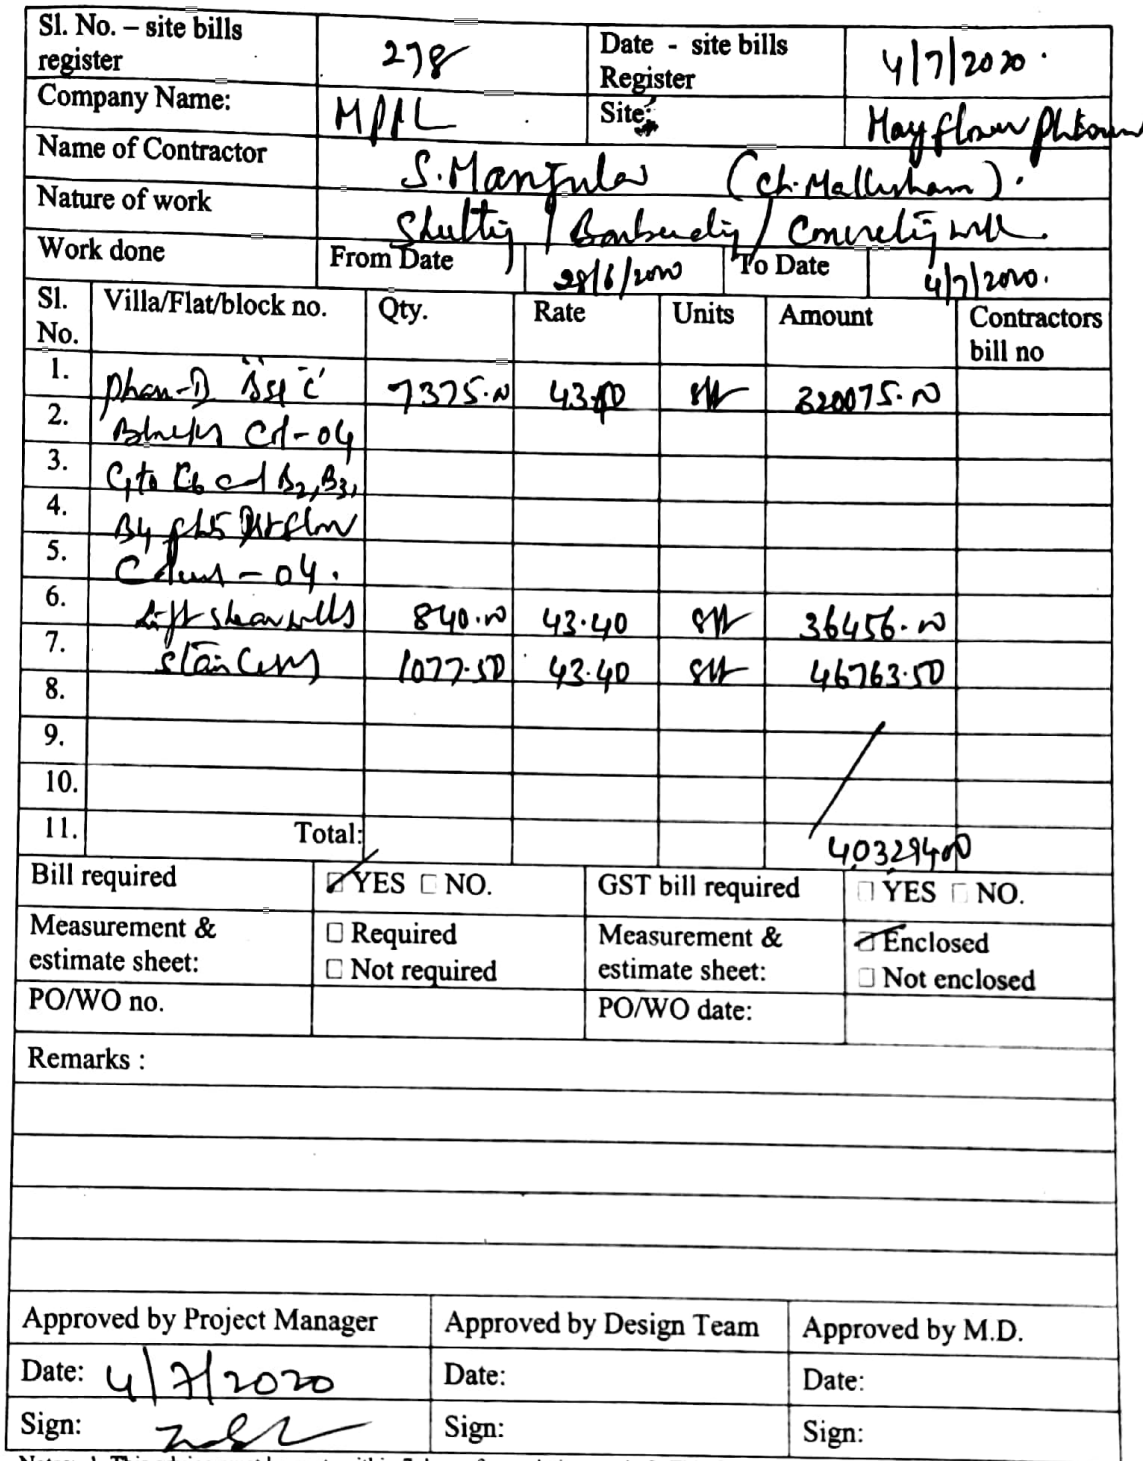 Sl. No. – site bills register 278 Date - site bills Register 4/7/2020.
Company Name: MPPL Site: Mayflower Platinum
Name of Contractor S. Manjula (Ch. Mallesham).
Nature of work Shutting / Barbending / Concreting work
Work done From Date 28/6/2020 To Date 4/7/2020.
Sl. No. Villa/Flat/block no. Qty. Rate Units Amount Contractors bill no
1. 7375.00 320075.00
2. Blocks - 04
3. C1 to C6 B2, B3,
4. B4
5. - 04.
6. Lift shear walls 840.00 43.40 36456.00
7. Stair 1077.50 43.40 46763.50
8.
9.
10.
11. Total: 403294.00
Bill required YES NO. GST bill required YES NO.
Measurement & estimate sheet: Required Not required Measurement & estimate sheet: Enclosed Not enclosed
PO/WO no. PO/WO date:
Remarks :
Approved by Project Manager Approved by Design Team Approved by M.D.
Date: 4/7/2020 Date: Date:
Sign: Sign: Sign: